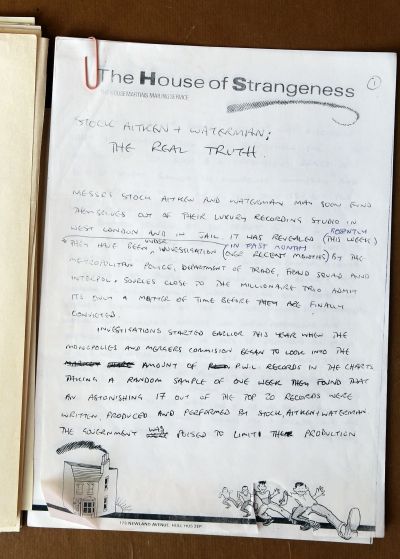 The House of Strangeness
THE HOUSEMARTINS MAILING SERVICE
1
STOCK AITKEN + WATERMAN;
THE REAL TRUTH.
MESSRS STOCK AITKEN AND WATERMAN MAY SOON FIND
THEMSELVES OUT OF THEIR LUXURY RECORDING STUDIO IN
RECENTLY
WEST LONDON AND IN JAIL IT WAS REVEALED (THIS WEEK)
UNDER IN PAST MONTH
THEY HAVE BEEN INVESTIGATION (OVER RECENT MONTHS) BY THE
METROPOLITAN POLICE, DEPARTMENT OF TRADE, FRAUD SQUAD AND
INTERPOL. SOURCES CLOSE TO THE MILLIONAIRE TRIO ADMIT
ITS ONLY A MATTER OF TIME BEFORE THEY ARE FINALLY
CONVICTED.
INVESTIGATIONS STARTED EARLIER THIS YEAR WHEN THE
MONOPOLIES AND MERGERS COMMISION BEGAN TO LOOK INTO THE
AMOUNT OF P.W.L. RECORDS IN THE CHARTS
TAKING A RANDOM SAMPLE OF ONE WEEK THEY FOUND THAT
AN ASTONISHING 17 OUT OF THE TOP 20 RECORDS WERE
WRITTEN PRODUCED AND PERFORMED BY STOCK, AITKEN + WATERMAN
WAS
THE GOVERNMENT POISED TO LIMIT THEIR PRODUCTION
NEWLAND AVENUE, HULL HU5 2EP